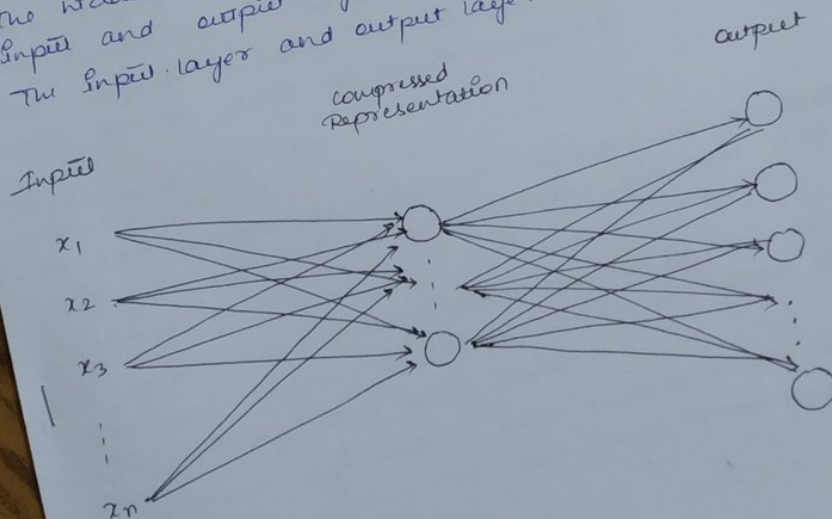 The
input and output
The input layer and output
output
Compressed
Representation
Input
x1
x2
x3
xn